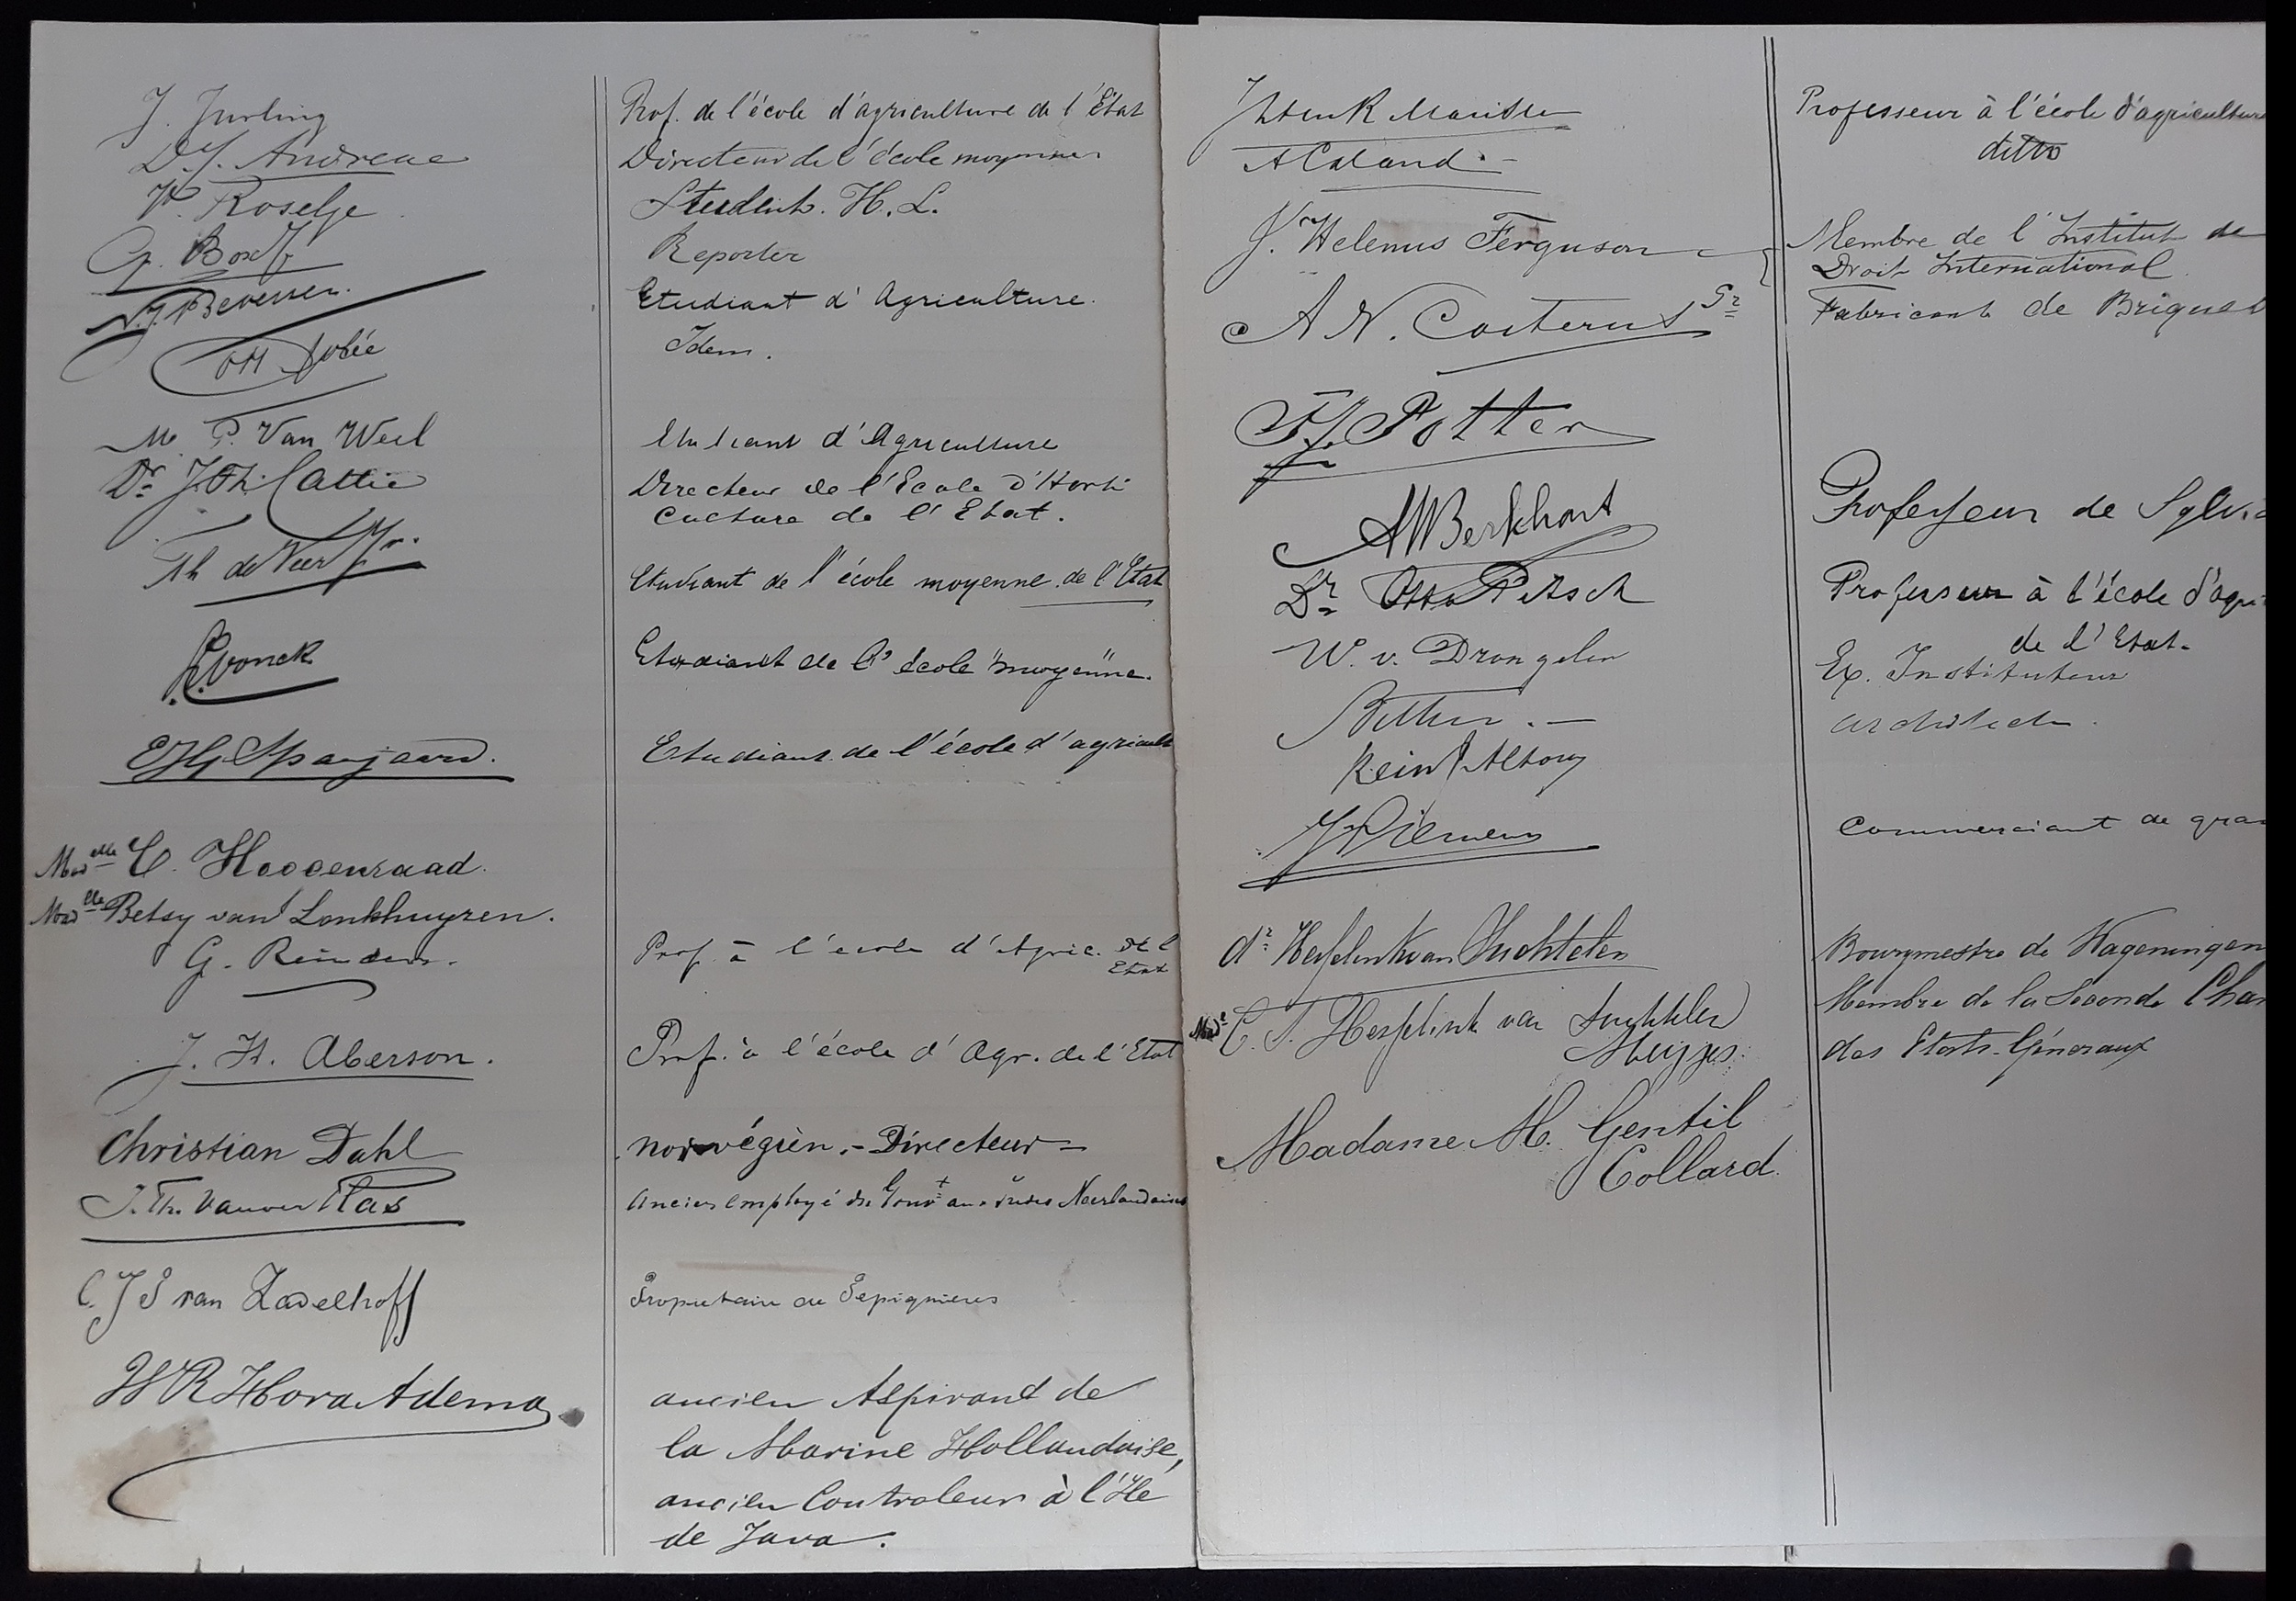 J. Jurling Prof. de l'école d'agriculture de l'État
Dr. J. Andreae Directeur de l'école moyenne
W. Roselje Student. H. L.
G. Bosch Reporter
N. J. Beversen. Etudiant d'Agriculture.
Idem.
M. P. Van Weel Etudiant d'Agriculture
Dr. J. Th. Cattie Directeur de l'Ecole d'Horti
culture de l'Etat.
Th de Veer Jr. Etudiant de l'école moyenne de l'Etat
Vonck Etudiant de l'école "moyenne.
E. H. G. Spanjaard. Etudiant de l'école d'agricult
Madelle C. Hoogenraad.
Madelle Betsy van Lonkhuyzen.
G. Reinders. Prof à l'école d'Agric. de l
Etat
J. H. Aberson. Prof. à l'école d'Agr. de l'Etat
Christian Dahl norwégien. - Directeur -
J. Th. Van der Plas Ancien employé du Gouvt aux Indes Neerlandaises
C. J. S van Zadelhoff Proprietaire de Pepignieres
W R Hora Adema ancien Aspirant de
la Marine Hollandaise,
ancien Controleur à l'Ile
de Java.
Professeur à l'école d'agriculture
A Caland. - ditto
J. Helenus Ferguson Membre de l'Institut de
Droit International
A N. Costerus Sr Fabricant de Briques
F. J. Potter
A Berkhout Professeur de Sylvi
Dr Otto Pitsch Professeur à l'école d'agri
de l'Etat.
W. v. Drongelen Ex. Instituteur
Ritter. - architecte.
Rein Altony
J. Siemens Commerciant de gra
dr Hesselink van Suchtelen Bourgmestre de Wageningen
Membre de la Seconde Cham
Made C. J. Hesselink van Suchtelen des Etats-Géneraux
Madame M. Gentil
Collard.